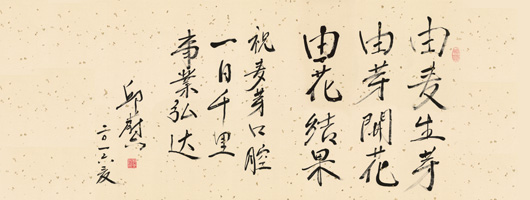 由麦生芽
由芽開花
由花結果
祝麦芽口腔
一日千里
事業弘达
邱蔚六
二〇一六夏